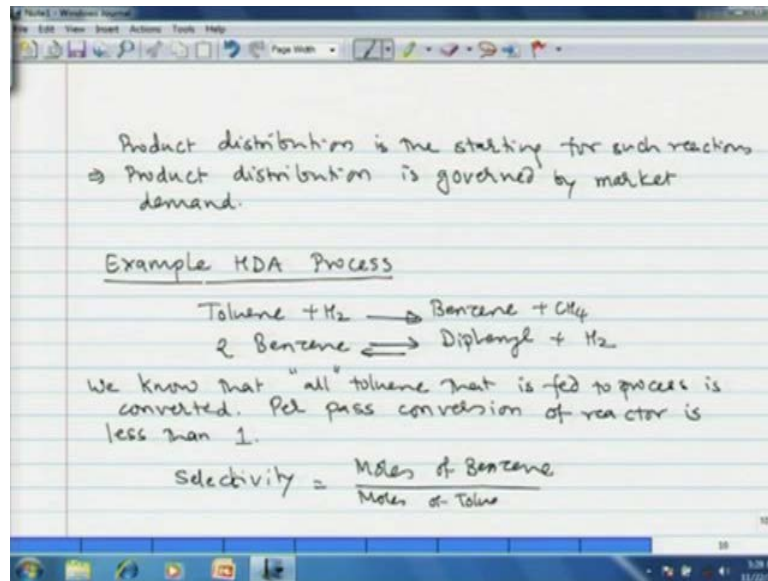 Note1 - Windows Journal
File Edit View Insert Actions Tools Help
Page Width
Product distribution is the starting for such reactions
⇒ Product distribution is governed by market
demand.
Example HDA Process
Toluene + H2 → Benzene + CH4
2 Benzene ⇌ Diphenyl + H2
We know that "all" toluene that is fed to process is
converted. Per pass conversion of reactor is
less than 1.
Selectivity = Moles of Benzene
Moles of Tolue
10